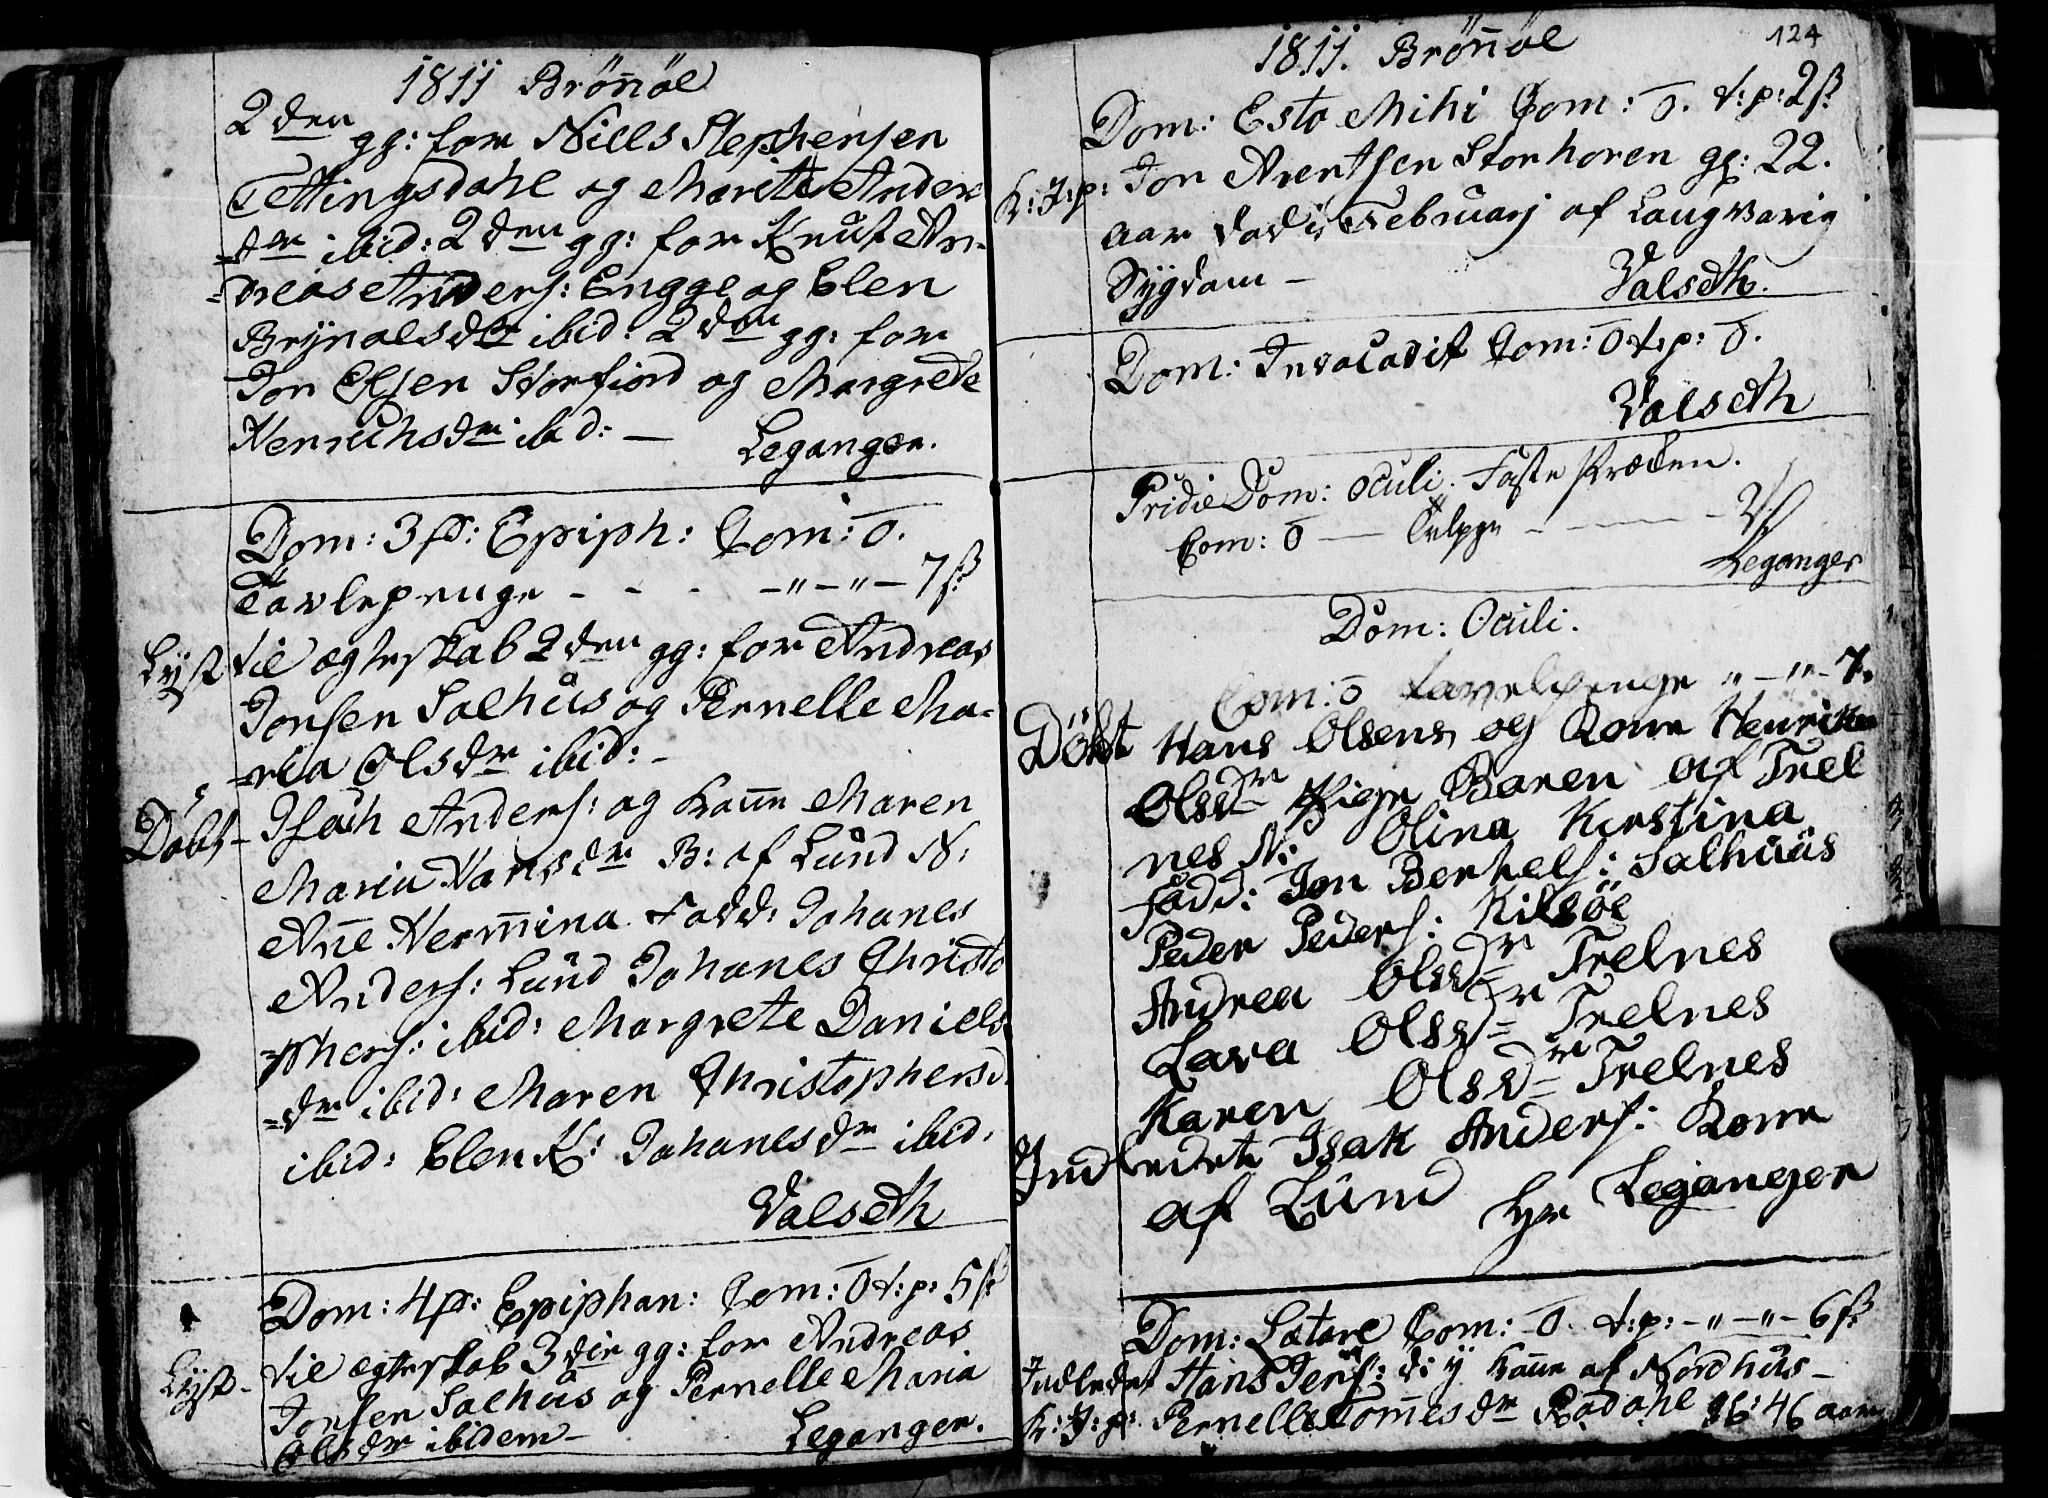 1811 Brönöe
2den gg: for Niels Stephensen
Tettingsdahl og Marite Anders
=dr ibid: 2den gg: for Knut An-
=dreas Anders: Engge og Elen
Brynolsdr ibid: 2den gg: for
Jon Olsen Storfiord og Margrete
Henrichsdr ibid: — Leganger.
Dom: 3 p: Epiph: Com: 0.
Tavlepenge - - - -"-"- 7 ß
Lyst til ægteskab 2den gg: for Andreas
Jonsen Salhus og Pernelle Ma-
=ria Olsdr ibid: -
Döbt- Isach Anders: og kone Maren
Maria Hansdr B: af Lund N:
Ane Hermina Fadd: Johanes
Anders: Lund Johanes Christo
=phers: ibid: Margrete Daniels
=dr ibid: Maren Christophersd.
ibid: Elen K: Johanesdr ibid:
Valseth
Dom: 4 p: Epiphan: Com: 0 t:p: 5 ß
Lyst- til ægteskab 3die gg: for Andreas
Jonsen Salhus og Pernelle Maria
Olsdr ibidem - Leganger.
124
1811. Brönöe
Dom: Esto Mihi Com: 0. t:p: 2 ß
K: J: p: Jon Arentsen Storhoren gl: 22.
aar død i Februarj af Langvarig
Sygdom - Valseth.
Dom: Invocavit Com: 0 t:p: 0.
Valseth
Pridie Dom: Oculi. Faste Præken.
Com: 0 —
Leganger
Dom: Oculi.
Com: 0 tavelpenge "-"- 7.
Döbt Hans Olsens og Kone Henrikea
Olsdr Pige Baren af Trel
nes N: Olina Kirstina
fadd: Jon Berhels: Salhuus
Peder Peders: Kilsöe
Andrea Olsdr Trelnes
Lava Olsdr Trelnes
Karen Olsdr Trelnes
Indledet Isak Anders: Kone
af Lund Hr Leganger
Dom: Lætare Com: 0. t:p: -"-"- 6 ß
Indledet Hans Jens: d: y kone af Nordhus-
K: J: p: Pernelle Tomesdr Rødahl gl: 46 aar